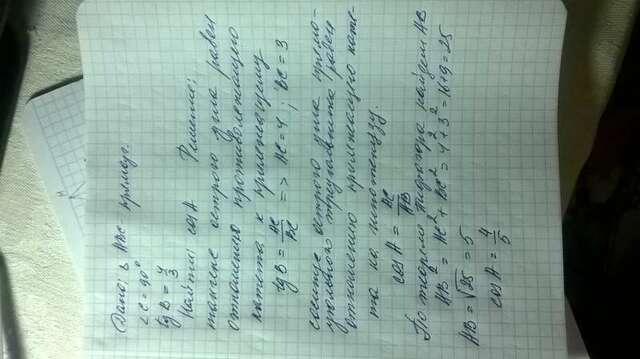 Дано: Δ ABC - прямоуг.
∠C = 90°
tg B = 4/3
Найти: cos A
Решение:
тангенс острого угла равен
отношению противолежащего
катета к прилежащему
tg B = AC/BC => AC = 4; BC = 3
косинус острого угла прямо-
угольного треугольника равен
отношению прилежащего кате-
та на гипотенузу.
cos A = AC/AB
По теореме Пифагора найдем AB
AB² = AC² + BC² = 4² + 3² = 16+9=25
AB = √25 = 5
cos A = 4/5